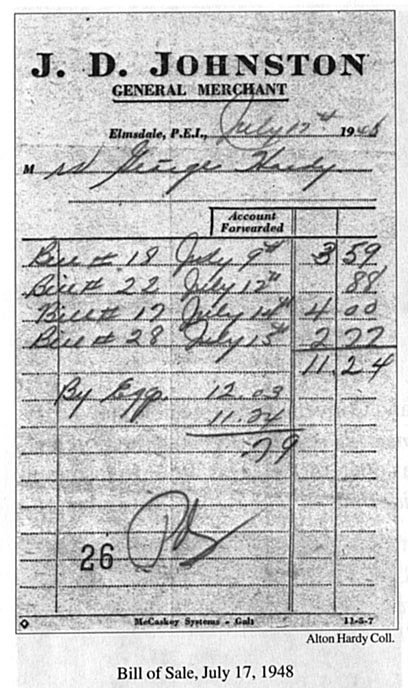 J. D. JOHNSTON
GENERAL MERCHANT
Elmsdale, P.E.I., July 17th 1948
Mrs George Hardy
Account Forwarded
Bill # 18 July 9th 3 59
Bill # 22 July 12th 88
Bill # 17 July 14th 4 00
Bill # 28 July 15th 2 77
11.24
By Egg. 12.03
11.24
.79
26 Pd
McCaskey Systems - Galt 11-5-7
Alton Hardy Coll.
Bill of Sale, July 17, 1948